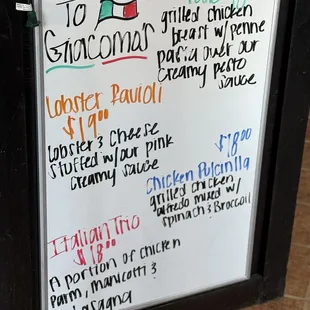 To
Giacomo's
grilled chicken
breast w/penne
pasta over our
creamy pesto
sauce
Lobster Ravioli
$19.00
Lobster & Cheese
stuffed w/our pink
creamy sauce
$18.00
Chicken Pulcinilla
grilled chicken
alfredo mixed w/
spinach & Broccoli
Italian Trio
$18.00
A portion of chicken
Parm, Manicotti &
Lasagna